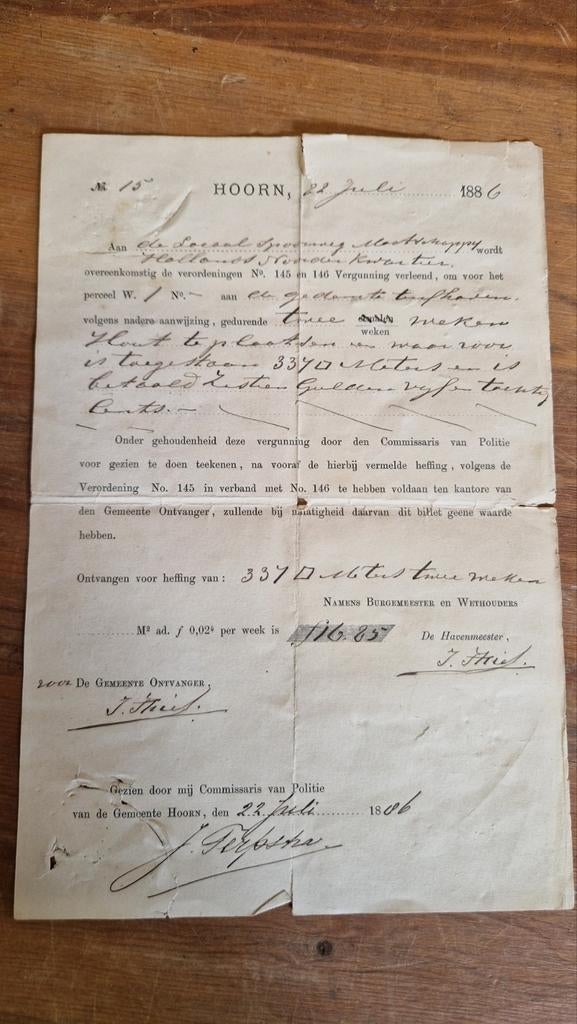 № 15 HOORN, 22 Juli 1886
Aan de Locaal Spoorweg Maatschappy wordt
Hollands Noorder Kwartier.
overeenkomstig de verordeningen No. 145 en 146 Vergunning verleend, om voor het
perceel W. 1 No. – aan de gedempte turfhaven.
volgens nadere aanwijzing, gedurende twee maanden weken
weken
Hout te plaatsen en waar voor
is toegestaan 337 □ Meters en is
betaald Zestien Gulden vyf en tachtig
Cents. –
Onder gehoudenheid deze vergunning door den Commissaris van Politie
voor gezien te doen teekenen, na vooraf de hierbij vermelde heffing, volgens de
Verordening No. 145 in verband met No. 146 te hebben voldaan ten kantore van
den Gemeente Ontvanger, zullende bij nalatigheid daarvan dit billet geene waarde
hebben.
Ontvangen voor heffing van: 337 □ Meters twee weken
Namens Burgemeester en Wethouders
M² ad. f 0,02⁵ per week is f 16.85 De Havenmeester,
J. Thiel.
voor De Gemeente Ontvanger,
J. Thiel.
Gezien door mij Commissaris van Politie
van de Gemeente Hoorn, den 22 Juli 1886
J. Terpstra